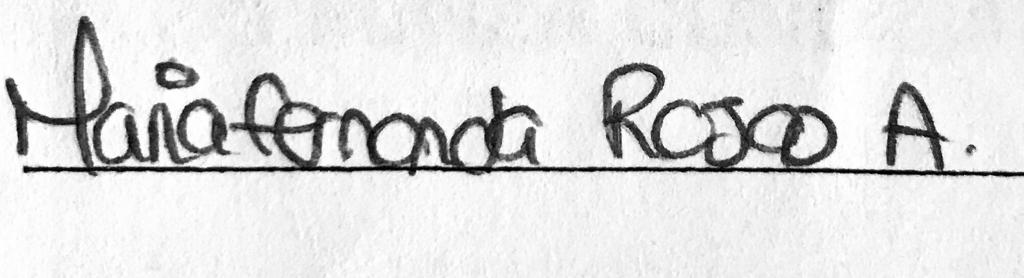 Mariafernanda Rojas A.